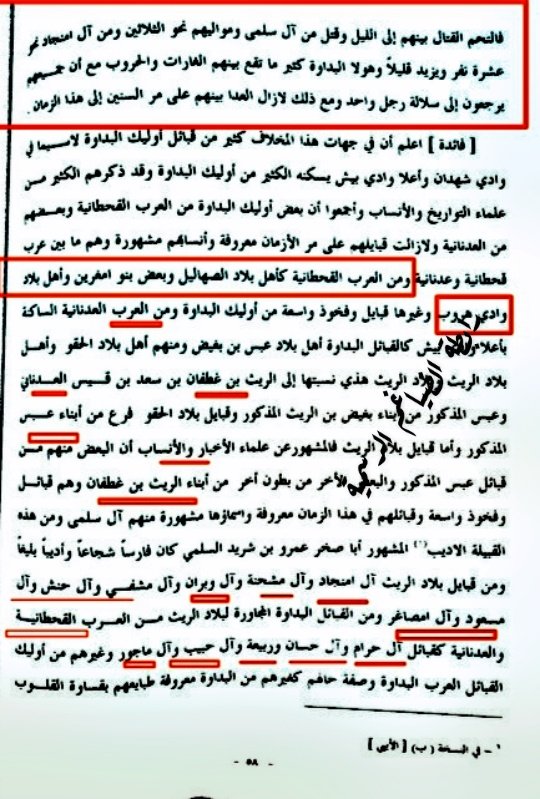 فالتحم القتال بينهم إلى الليل وقتل من آل سلمى ومواليهم نحو الثلاثين ومن آل امنجاد نحو
عشرة نفر ويزيد قليلاً وهولا البداوة كثير ما تقع بينهم الغارات والحروب مع أن جميعهم
يرجعون إلى سلالة رجل واحد ومع ذلك لازال العدا بينهم على مر السنين إلى هذا الزمان.
[ فائدة ] اعلم أن في جهات هذا المخلاف كثير من قبائل أوليك البداوة لاسيما في
وادي شهدان وأعلا وادي بيش يسكنه الكثير من أوليك البداوة وقد ذكرهم الكثير مــن
علماء التواريخ والأنساب وأجمعوا أن بعض أوليك البداوة من العرب القحطانية وبعضــهم
من العدنانية ولازالت قبايلهم على مر الأزمان معروفة وأنسابهم مشهورة وهم ما بين عرب
قحطانية وعدنانية ومن العرب القحطانية كأهل بلاد الصهاليل وبعض بنو امغرين وأهل بلاد
وادي هروب وغيرها قبايل وفخوذ واسعة من أوليك البداوة ومن العرب العدنانية الساكنة
بأعلا وادي بيش كالقبائل البداوة أهل بلاد عبس بن بغيض ومنهم أهل بلاد الحقو وأهــل
بلاد الريث وبلاد الريث هذي نسبتها إلى الريث بن غطفان بن سعد بن قــيس العــدناني
وعبس المذكور من أبناء بغيض بن الريث المذكور وقبايل بلاد الحقو فرع من أبناء عــبس
المذكور وأما قبايل بلاد الريث فالمشهورعن علماء الأخبار والأنساب أن البعض منهم مــن
قبائل عبس المذكور والبعض الأخر من بطون أخر من أبناء الريث بن غطفان وهم قبائــل
وفخوذ واسعة وقبائلهم في هذا الزمان معروفة واسماؤها مشهورة منهم آل سلمى ومن هذه
القبيلة الاديب(١) المشهور أبا صخر عمرو بن شريد السلمي كان فارساً شجاعاً وأديباً بليغاً
ومن قبايل بلاد الريث آل امنجاد وآل مشحنة وآل وبران وآل مشفــي وآل حنش وآل
مسعود وآل امصاغر ومن القبائل البداوة المجاورة لبلاد الريث مــن العــرب القحطانيــة
والعدنانية كقبائل آل حرام وآل حسان وربيعة وآل حبيب وآل ماجور وغيرهم من أوليك
القبائل العرب البداوة وصفة حالهم كغيرهم من البداوة معروفة طبايعهم بقساوة القلــوب
١ - في النسخة ( ب ) [ الأبي ]
- ٥٨ -